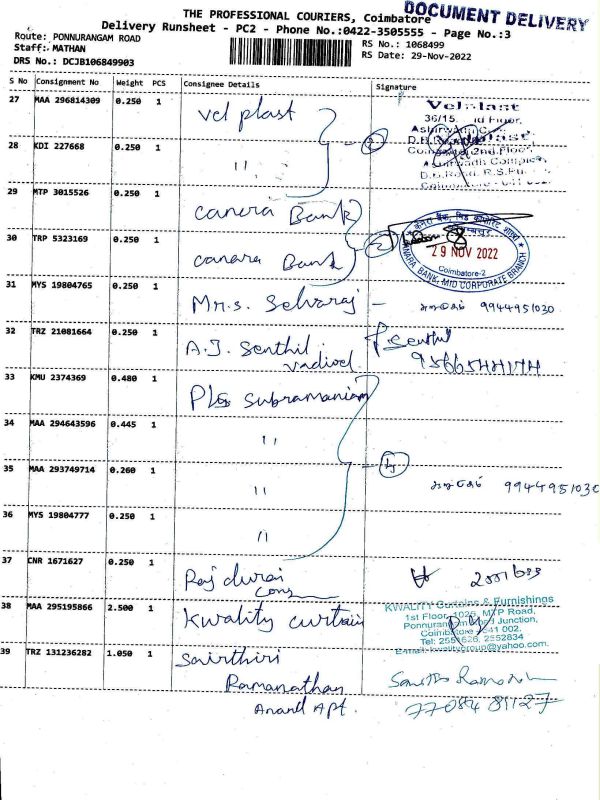 THE PROFESSIONAL COURIERS, Coimbatore
DOCUMENT DELIVERY
Delivery Runsheet - PC2 - Phone No.:0422-3505555 - Page No.:3
Route: PONNURANGAM ROAD
Staff: MATHAN
DRS No.: DCJB106849903
RS No.: 1068499
RS Date: 29-Nov-2022
S No Consignment No Weight PCS Consignee Details Signature
27 MAA 296814309 0.250 1 Vel plast
36/15
28 KDI 227668 0.250 1 " 2
D.B.Road, R.S.Pu
29 MTP 3015526 0.250 1 Canera Bank
30 TRP 5323169 0.250 1 Canara Bank 2
29 NOV 2022
Coimbatore-2
CANARA BANK, MID CORPORATE BRANCH
31 MYS 19804765 0.250 1 Mr.s. Selvaraj - 9944951030
32 TRZ 21081664 0.250 1 A.J. Senthil Vadivel Senthil
33 KMU 2374369 0.480 1 PLS Subramaniam
34 MAA 294643596 0.445 1 "
4
35 MAA 293749714 0.260 1 " 9944951030
36 MYS 19804777 0.250 1 "
37 CNR 1671627 0.250 1 Raj durai
38 MAA 295195866 2.500 1 Kwality curtain
KWALITY Curtains & Furnishings
1st Floor, 1025, MTP Road,
Ponnurangam Road Junction,
Coimbatore - 641 002.
Tel: 2551626, 2552834
E-mail: kwalitygroup@yahoo.com
39 TRZ 131236282 1.050 1 Sairthiri
Ramanathan
Anand Apt.
77084 81127